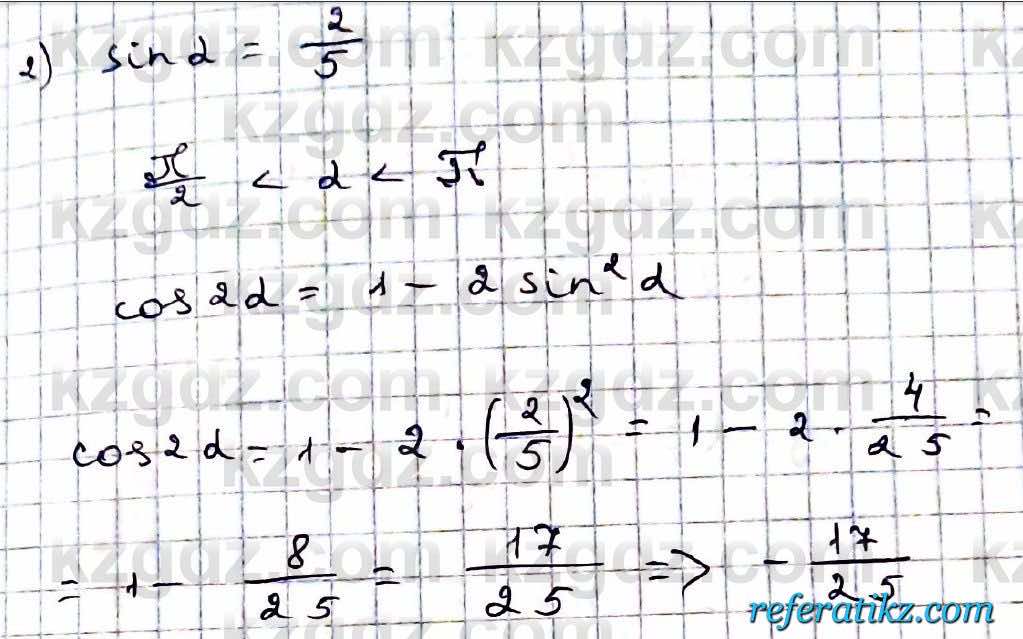 2) sin α = 2/5
π/2 < α < π
cos 2α = 1 - 2 sin² α
cos 2α = 1 - 2 · (2/5)² = 1 - 2 · 4/25 =
= 1 - 8/25 = 17/25 => - 17/25
kzgdz.com
referatikz.com